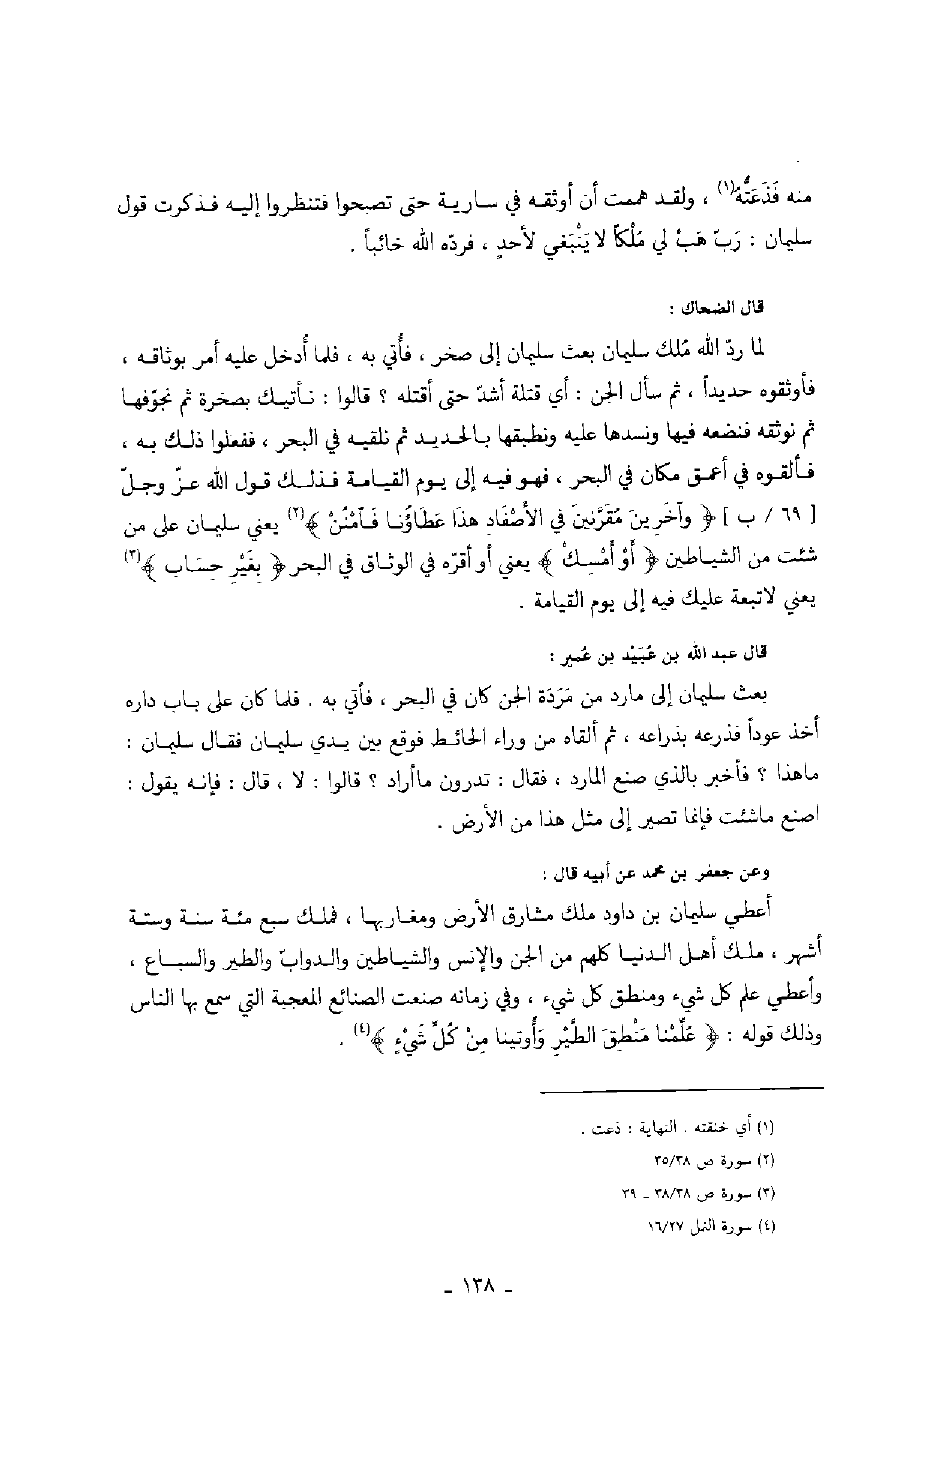 منه فَذَعَتُّهُ(١) ، ولقد هممت أن أوثقه في سارية حتى تصبحوا فتنظروا إليه فذكرت قول
سليمان : رَبّ هَبْ لي مُلْكاً لا يَنْبَغي لأحدٍ ، فردّه الله خائباً .
قال الضحاك :
لما ردّ الله مُلك سليمان بعث سليمان إلى صخر ، فأُتي به ، فلما أُدخل عليه أمر بوثاقه ،
فأوثقوه حديداً ، ثم سأل الجن : أي قتلة أشدّ حتى أقتله ؟ قالوا : نأتيك بصخرة ثم نجوّفها
ثم نوثقه فنضعه فيها ونسدها عليه ونطبقها بالحديد ثم نلقيه في البحر ، ففعلوا ذلك به ،
فألقوه في أعمق مكان في البحر ، فهو فيه إلى يوم القيامة فذلك قول الله عزّ وجلّ
[ ٦٩ / ب ] ﴿ وآخَرِينَ مُقَرَّنينَ في الأصْفَادِ هذَا عَطَاؤُنا فَآمْنُنْ ﴾(٢) يعني سليمان على من
شئت من الشياطين ﴿ أَوْ أمْسِكْ ﴾ يعني أو أقرّه في الوثاق في البحر ﴿ بِغَيْرِ حِسَاب ﴾(٣)
يعني لاتبعة عليك فيه إلى يوم القيامة .
قال عبد الله بن عُبَيْد بن عُمير :
بعث سليمان إلى مارد من مَرَدَة الجن كان في البحر ، فأُتي به . فلما كان على باب داره
أخذ عوداً فذرعه بذراعه ، ثم ألقاه من وراء الحائط فوقع بين يدي سليمان فقال سليمان :
ماهذا ؟ فأخبر بالذي صنع المارد ، فقال : تدرون ماأراد ؟ قالوا : لا ، قال : فإنه يقول :
اصنع ماشئت فإنما تصير إلى مثل هذا من الأرض .
وعن جعفر بن محمد عن أبيه قال :
أُعطي سليمان بن داود ملك مشارق الأرض ومغاربها ، فملك سبع مئة سنة وستة
أشهر ، ملك أهل الدنيا كلهم من الجن والإنس والشياطين والدوابّ والطير والسباع ،
وأعطي علم كل شيء ومنطق كل شيء ، وفي زمانه صنعت الصنائع المعجبة التي سمع بها الناس
وذلك قوله : ﴿ عُلِّمْنا مَنْطِقَ الطَّيْرِ وَأُوتينا مِنْ كُلِّ شَيْءٍ ﴾(٤) .
(١) أي خنقته . النهاية : ذعت .
(٢) سورة ص ٣٥/٣٨
(٣) سورة ص ٣٨/٣٨ ـ ٣٩
(٤) سورة النمل ١٦/٢٧
ـ ١٣٨ ـ